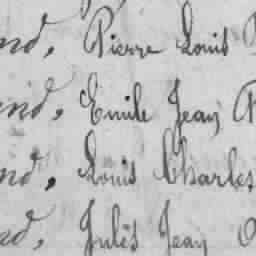 nd, Pierre Louis
ind, Emile Jean
nd, Louis Charles
nd, Jules Jean